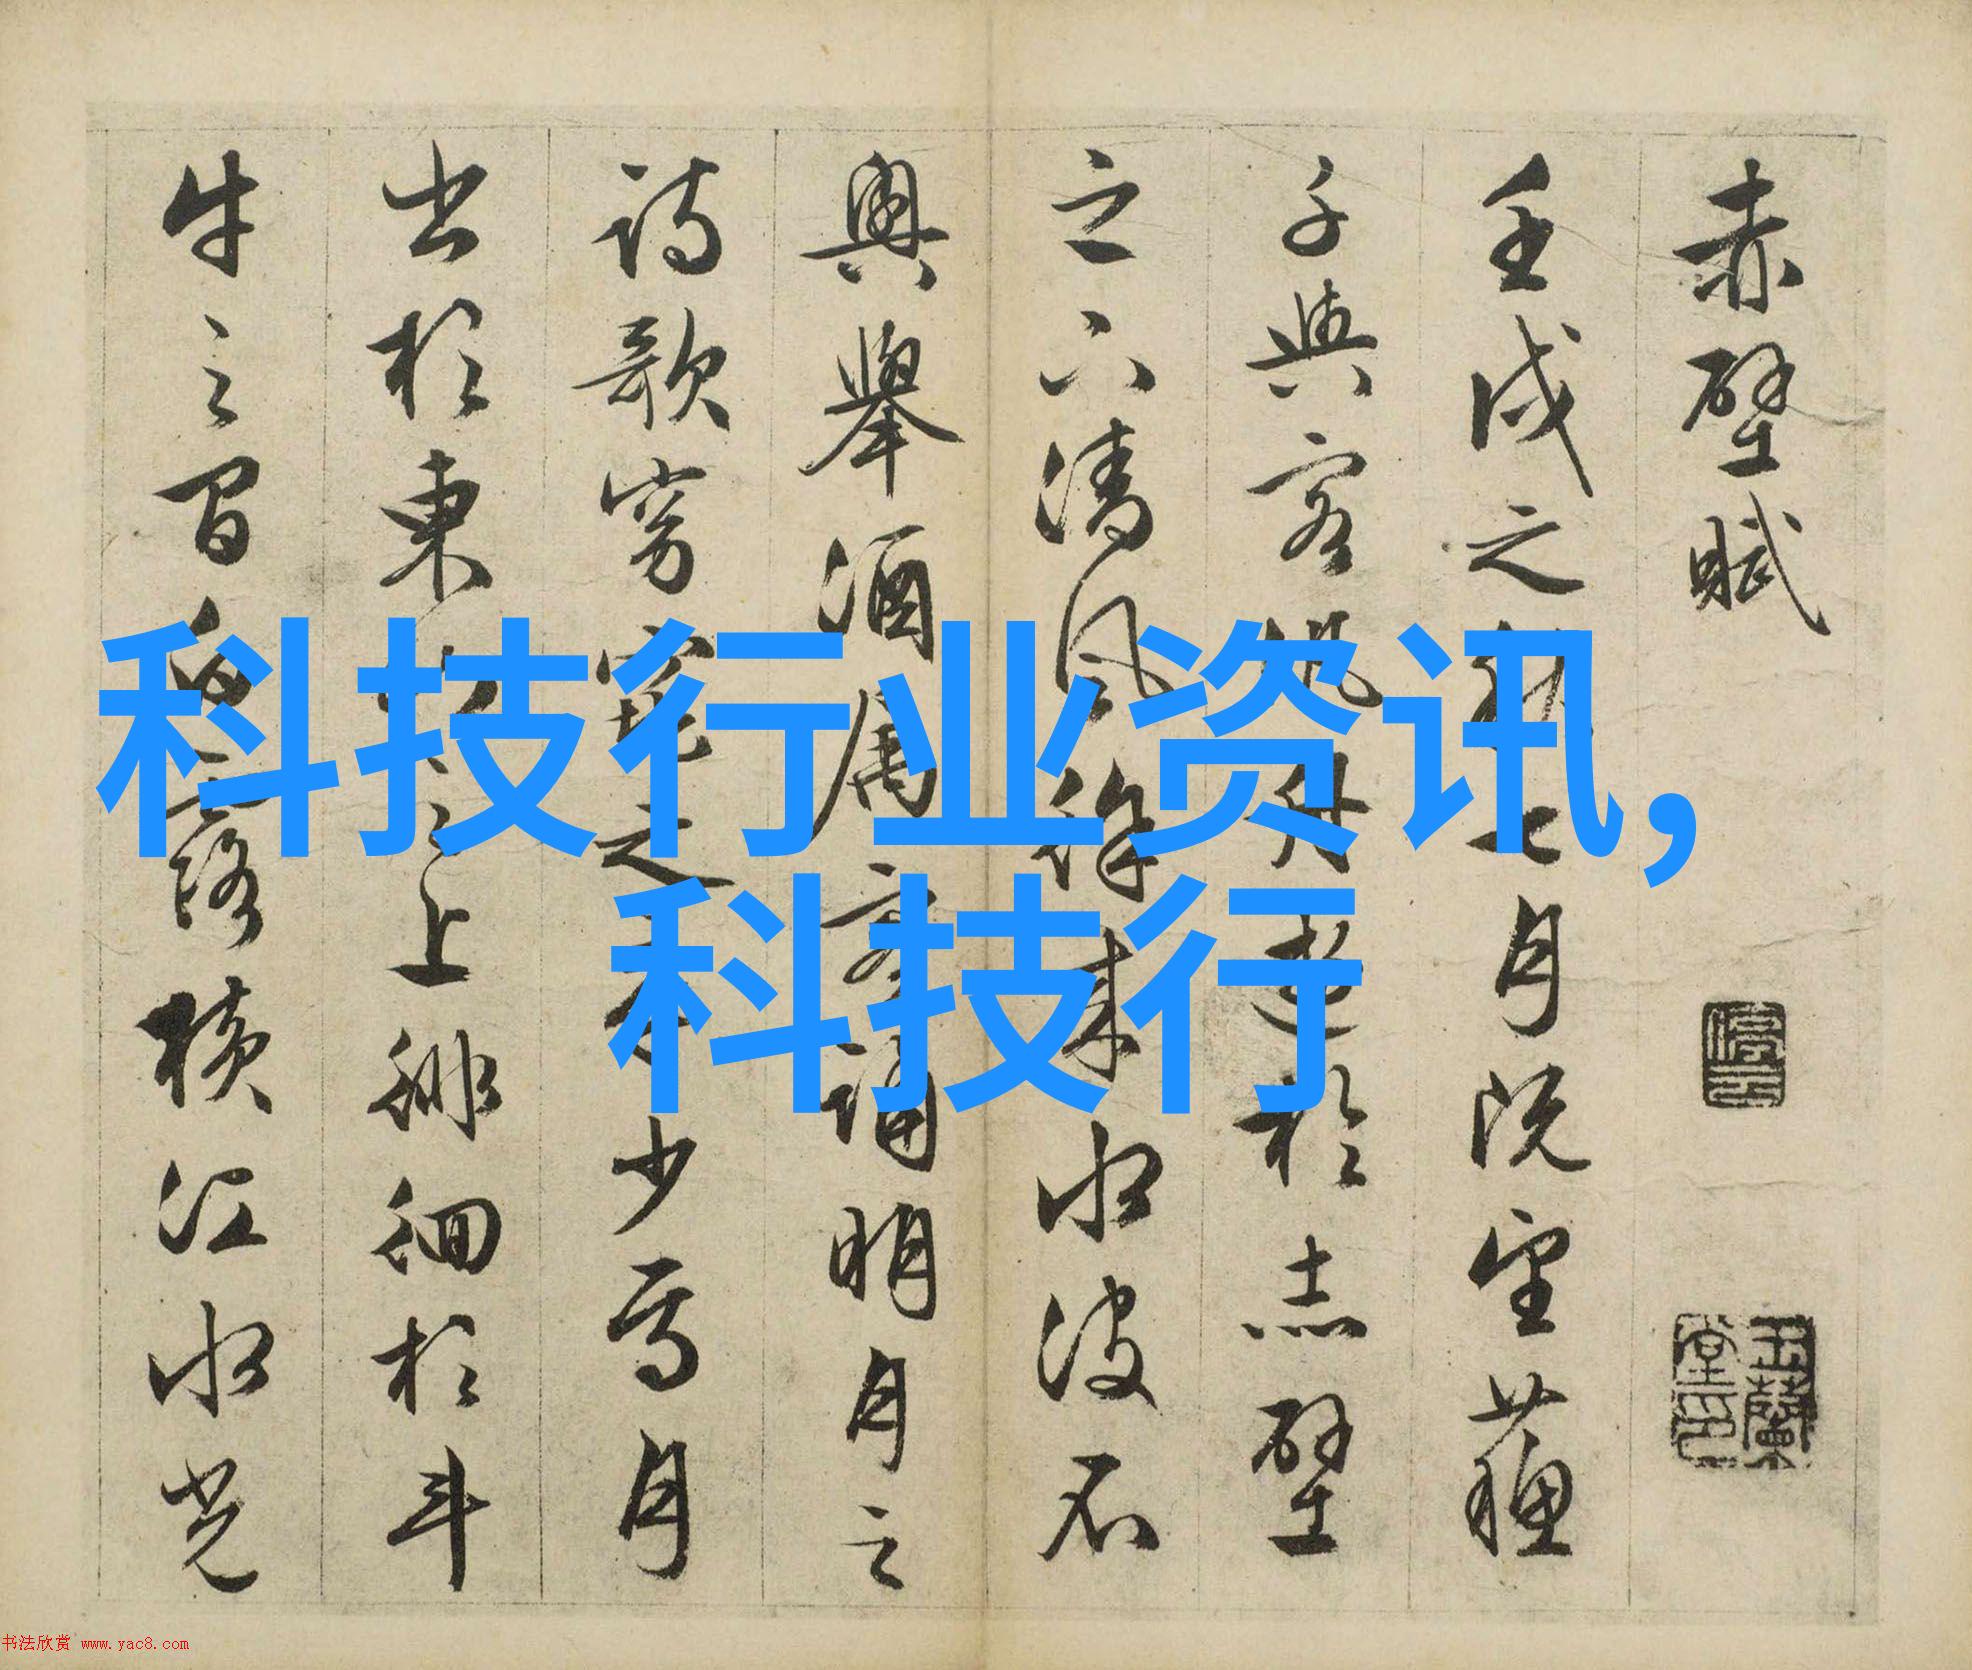 赤壁賦
壬戌之秋七月既望蘇
子與客汎舟遊於赤壁
之下清風徐來水波不
興舉酒屬客誦明月之
詩歌窈窕之章少焉月
出於東山之上徘徊於斗
牛之間白露橫江水光
停雲
玉蘭堂印
科技行业资讯,
科技行
书法欣赏 www.yac8.com